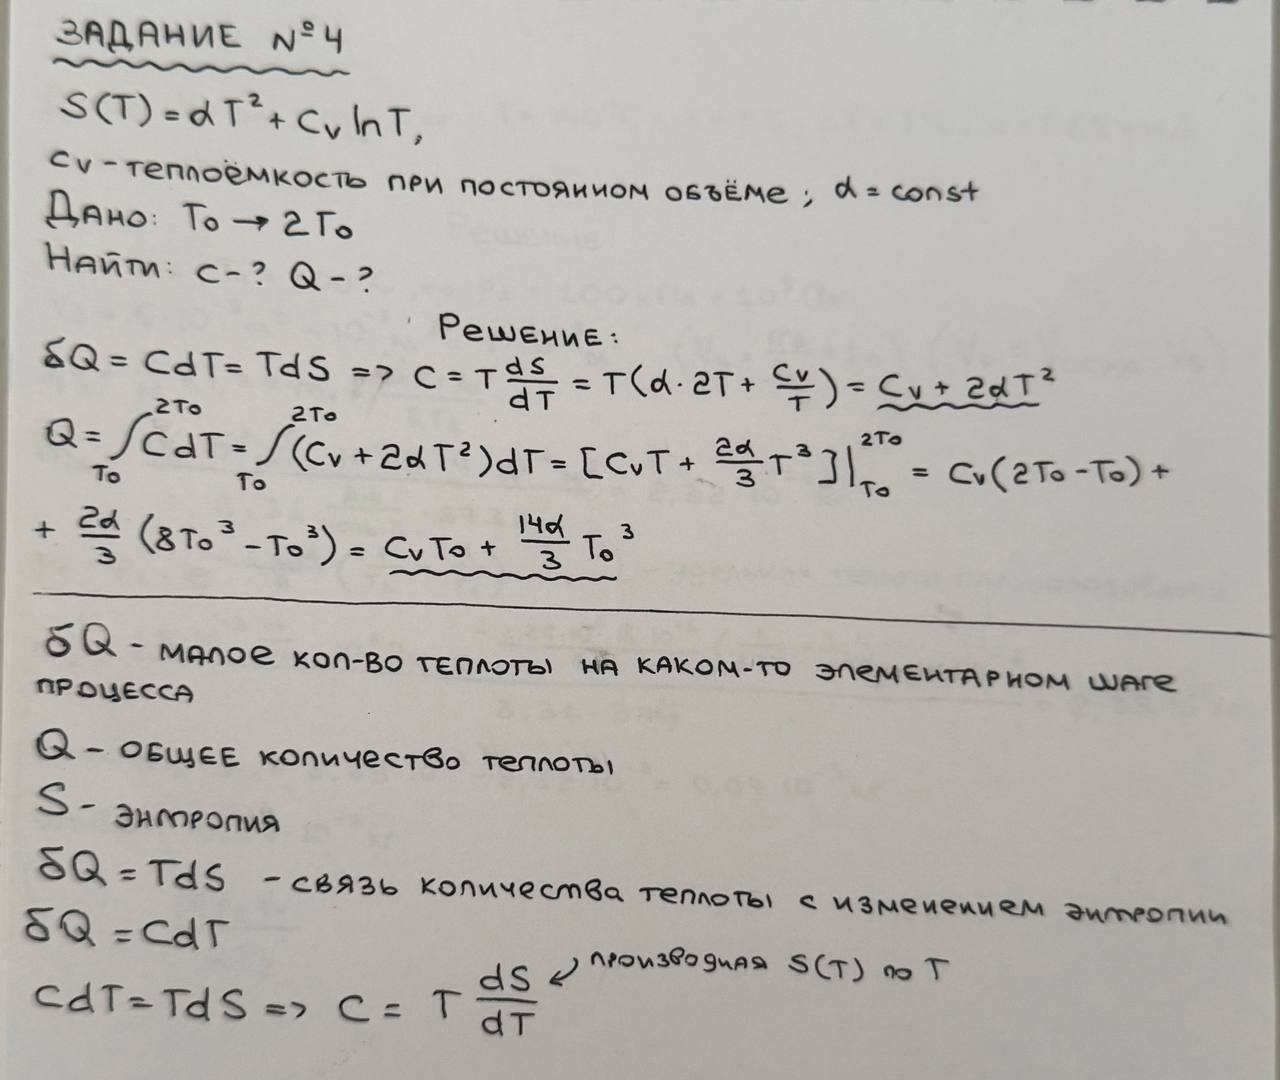 ЗАДАНИЕ №4
S(T) = αT² + Cv lnT,
Cv - теплоёмкость при постоянном объёме; α = const
Дано: T₀ → 2T₀
Найти: C - ? Q - ?
Решение:
δQ = CdT = TdS => C = T dS/dT = T(α·2T + Cv/T) = Cv + 2αT²
Q = ∫_{T₀}^{2T₀} CdT = ∫_{T₀}^{2T₀} (Cv + 2αT²)dT = [CvT + 2α/3 T³]|_{T₀}^{2T₀} = Cv(2T₀ - T₀) +
+ 2α/3 (8T₀³ - T₀³) = CvT₀ + 14α/3 T₀³
δQ - малое кол-во теплоты на каком-то элементарном шаге
процесса
Q - общее количество теплоты
S - энтропия
δQ = TdS - связь количества теплоты с изменением энтропии
δQ = CdT
CdT = TdS => C = T dS/dT ↙ производная S(T) по T